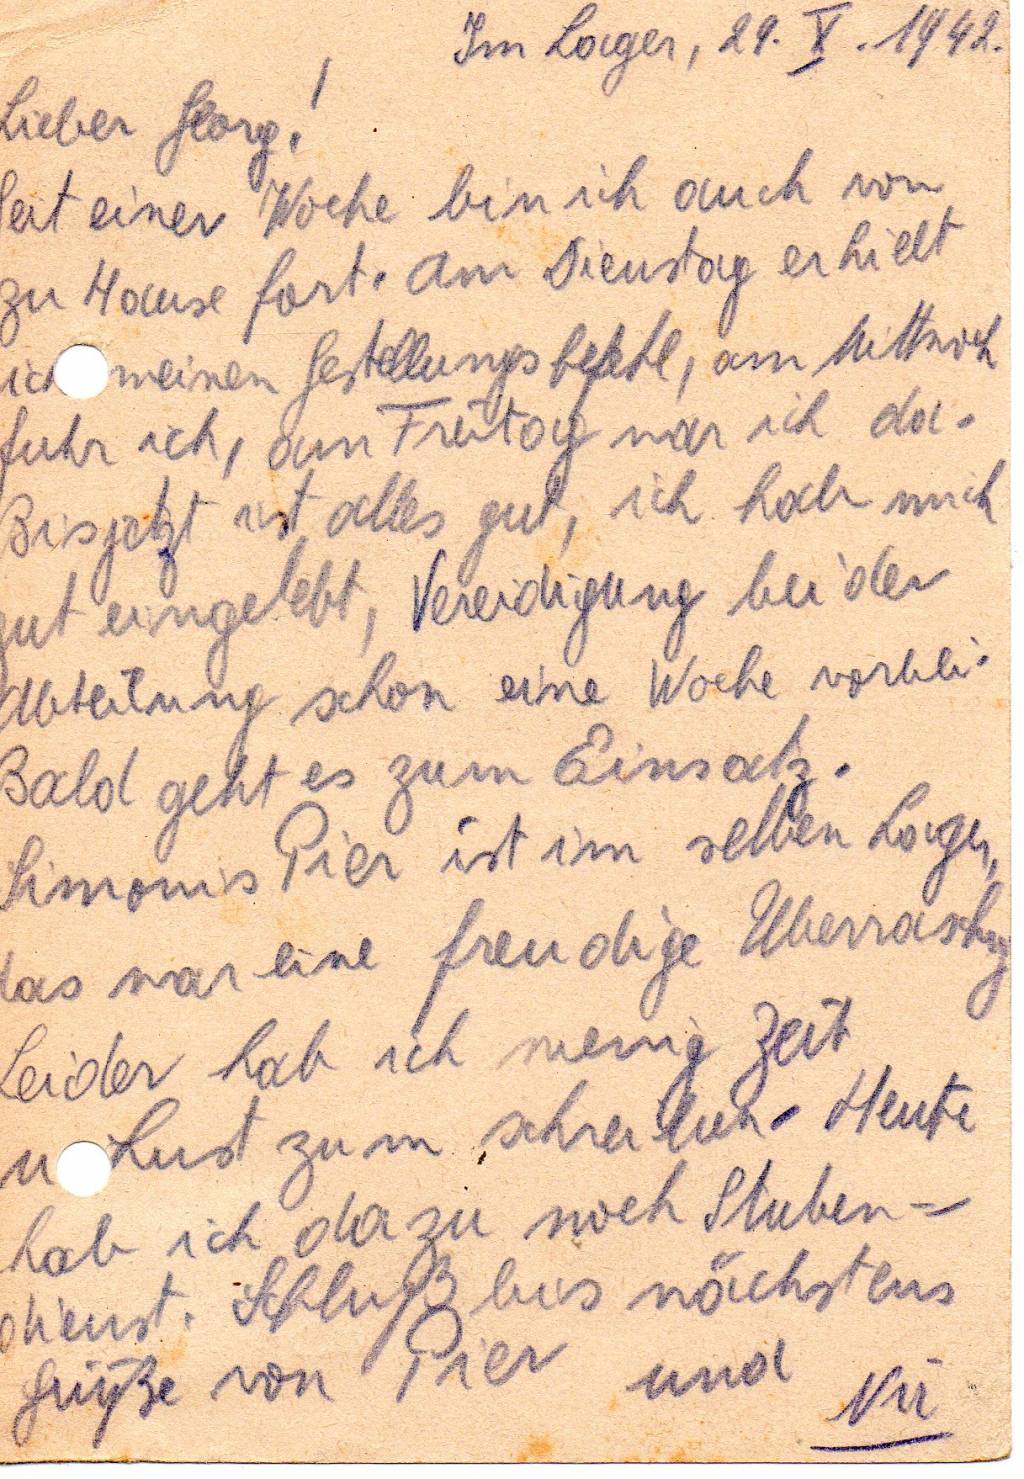 Im Lager, 29. V. 1942.
Lieber Georg!
Seit einer Woche bin ich auch von
zu Hause fort. Am Dienstag erhielt
ich meinen Gestellungsbefehl, am Mittwoch
fuhr ich, am Freitag war ich da.
Bis jetzt ist alles gut, ich hab mich
gut eingelebt, Vereidigung bei der
Abteilung schon eine Woche vorbei.
Bald geht es zum Einsatz.
Simonis Pier ist im selben Lager,
das war eine freudige Überraschung
Leider hab ich wenig Zeit
u Lust zum schreiben. Heute
hab ich dazu noch Stuben=
dienst. Schluß bis nächstens
Grüße von Pier und